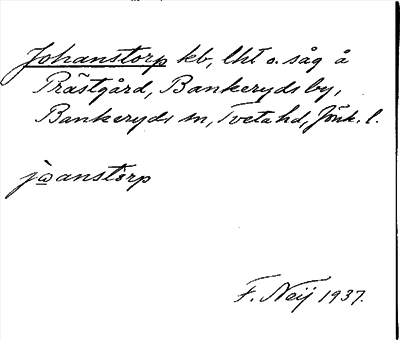 Johanstorp kb, lht o. såg å
Prästgård, Bankeryds by,
Bankeryds sn, Tveta hd, Jönk. l.
jωanstorp
F. Neij 1937.